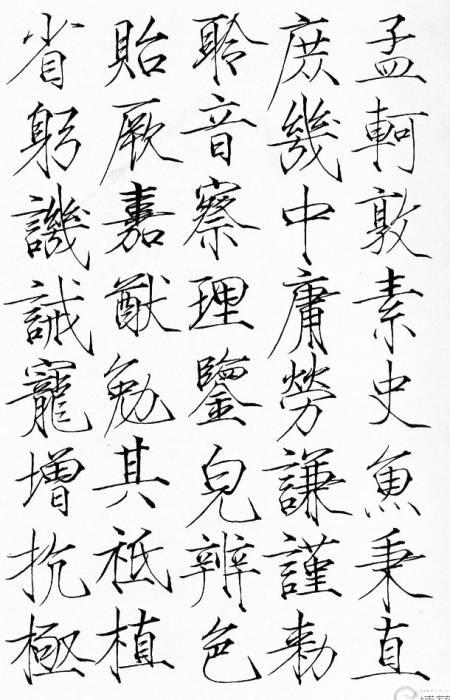 孟軻敦素史魚秉直
庶幾中庸勞謙謹勅
聆音察理鑒皃辨色
貽厥嘉猷勉其祗植
省躬譏誡寵增抗極